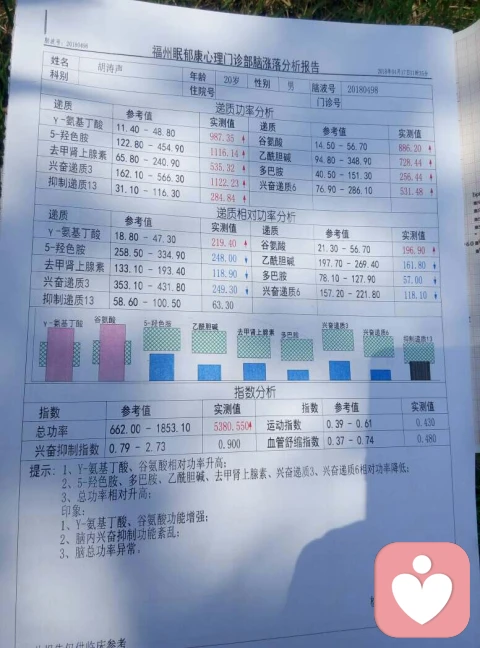 福州眠郁康心理门诊部脑涨落分析报告
脑波号：20180498
姓名 胡涛声 年龄 20岁 性别 男 脑波号 20180498
科别 住院号 门诊号
递质功率分析
递质 参考值 实测值 递质 参考值 实测值
γ-氨基丁酸 11.40 - 48.80 987.35 ↑ 谷氨酸 14.50 - 56.70 886.20 ↑
5-羟色胺 122.80 - 454.90 1116.14 ↑ 乙酰胆碱 94.80 - 348.90 728.44 ↑
去甲肾上腺素 65.80 - 240.90 535.32 ↑ 多巴胺 40.50 - 151.30 256.44 ↑
兴奋递质3 162.10 - 566.30 1122.23 ↑ 兴奋递质6 76.90 - 286.10 531.48 ↑
抑制递质13 31.10 - 116.30 284.84 ↑
递质相对功率分析
递质 参考值 实测值 递质 参考值 实测值
γ-氨基丁酸 18.80 - 47.30 219.40 ↑ 谷氨酸 21.30 - 56.70 196.90 ↑
5-羟色胺 258.50 - 334.90 248.00 ↓ 乙酰胆碱 197.70 - 269.40 161.80 ↓
去甲肾上腺素 133.10 - 193.40 118.90 ↓ 多巴胺 78.10 - 127.90 57.00 ↓
兴奋递质3 353.10 - 431.80 249.30 ↓ 兴奋递质6 157.20 - 221.80 118.10 ↓
抑制递质13 58.60 - 100.50 63.30
γ-氨基丁酸 谷氨酸 5-羟色胺 乙酰胆碱 去甲肾上腺素 多巴胺 兴奋递质3 兴奋递质6 抑制递质13
指数分析
指数 参考值 实测值 指数 参考值 实测值
总功率 662.00 - 1853.10 5380.550↑ 运动指数 0.39 - 0.61 0.430
兴奋抑制指数 0.79 - 2.73 0.900 血管舒缩指数 0.37 - 0.74 0.480
提示：1、Y-氨基丁酸、谷氨酸相对功率升高；
2、5-羟色胺、多巴胺、乙酰胆碱、去甲肾上腺素、兴奋递质3、兴奋递质6相对功率降低；
3、总功率相对升高；
印象：
1、Y-氨基丁酸、谷氨酸功能增强；
2、脑内兴奋抑制功能紊乱；
3、脑总功率异常。
报告仅供临床参考